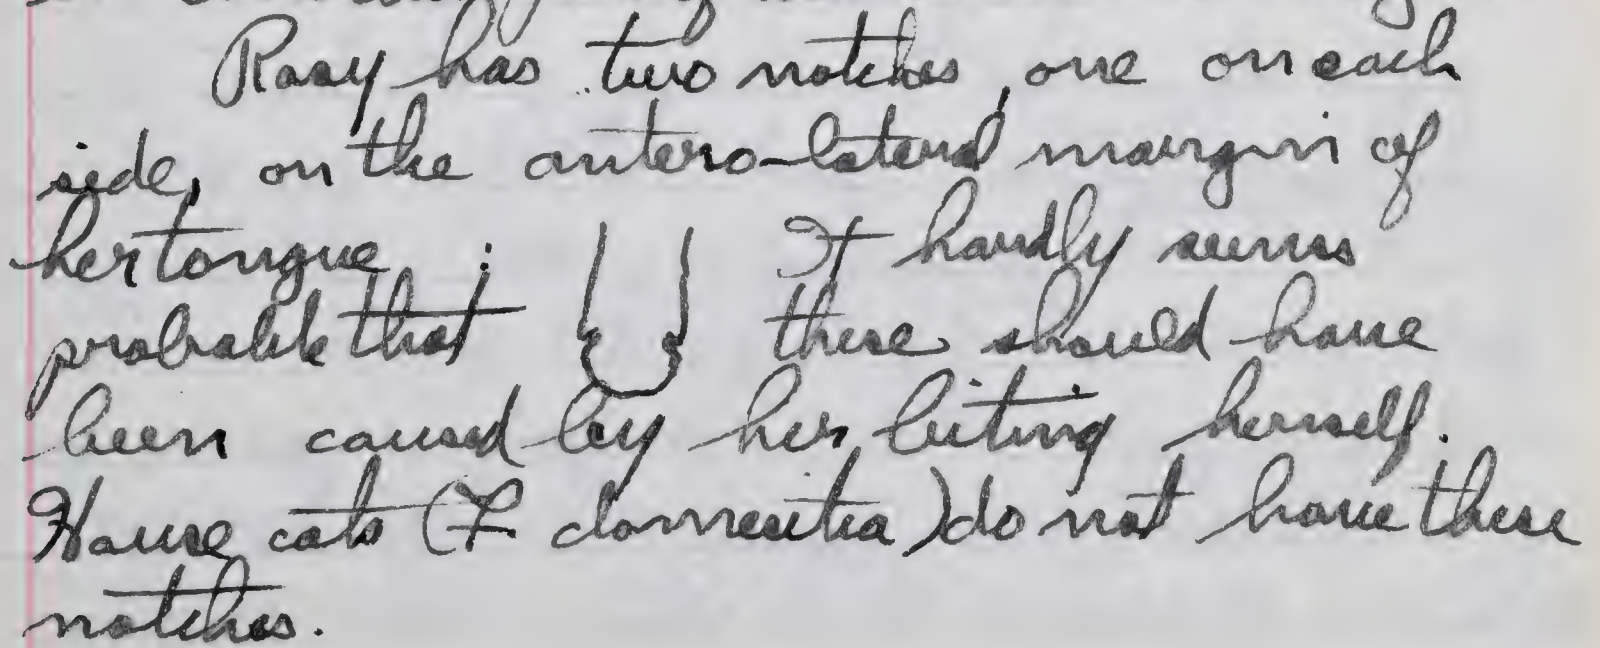 Rosy has two notches, one on each
side, on the antero-lateral margin of
her tongue : It hardly seems
probable that these should have
been caused by her biting herself.
House cats (F. domestica) do not have these
notches.